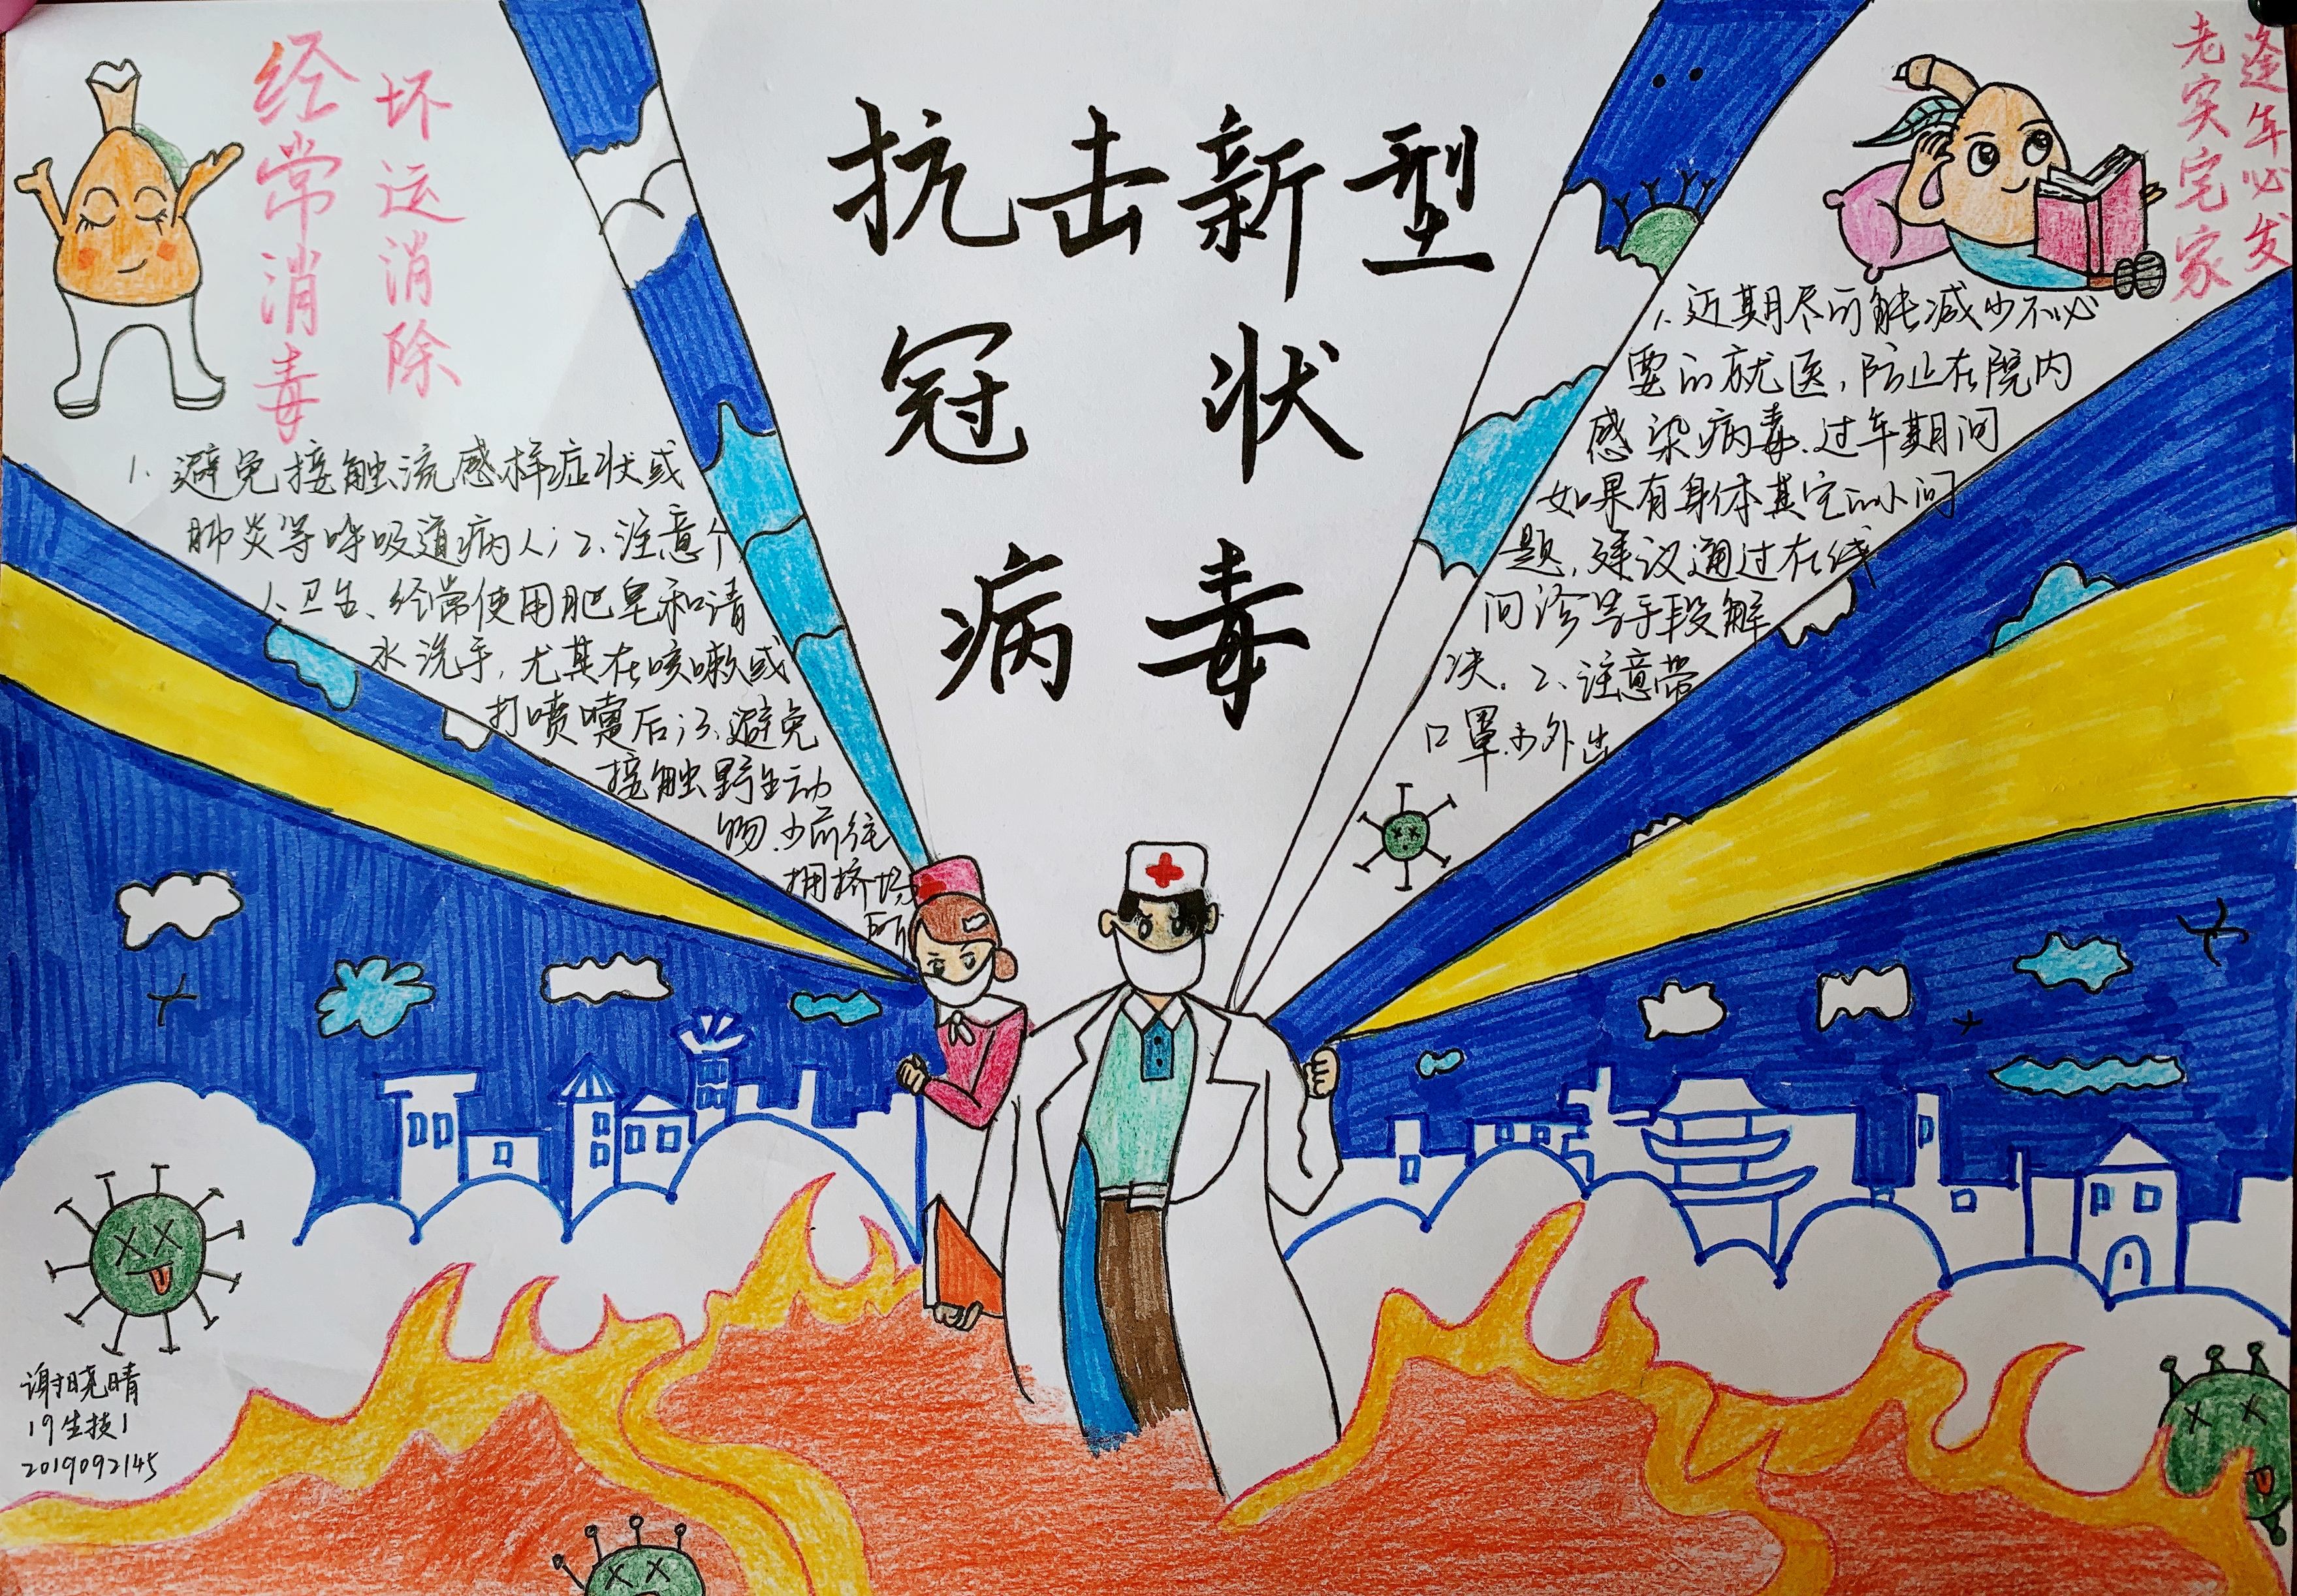 抗击新型
冠状
病毒
经常消毒
坏运消除
1、避免接触流感样症状或
肺炎等呼吸道病人；2、注意个
人卫生、经常使用肥皂和清
水洗手，尤其在咳嗽或
打喷嚏后；3、避免
接触野生动
物、少前往
拥挤场
所
老实宅家
逢年必发
1、近期尽可能减少不必
要的就医，防止在院内
感染病毒、过年期间
如果有身体其它的小问
题，建议通过在线
问诊等手段解
决。2、注意带
口罩、少外出
谢晓晴
19生技1
2019092145